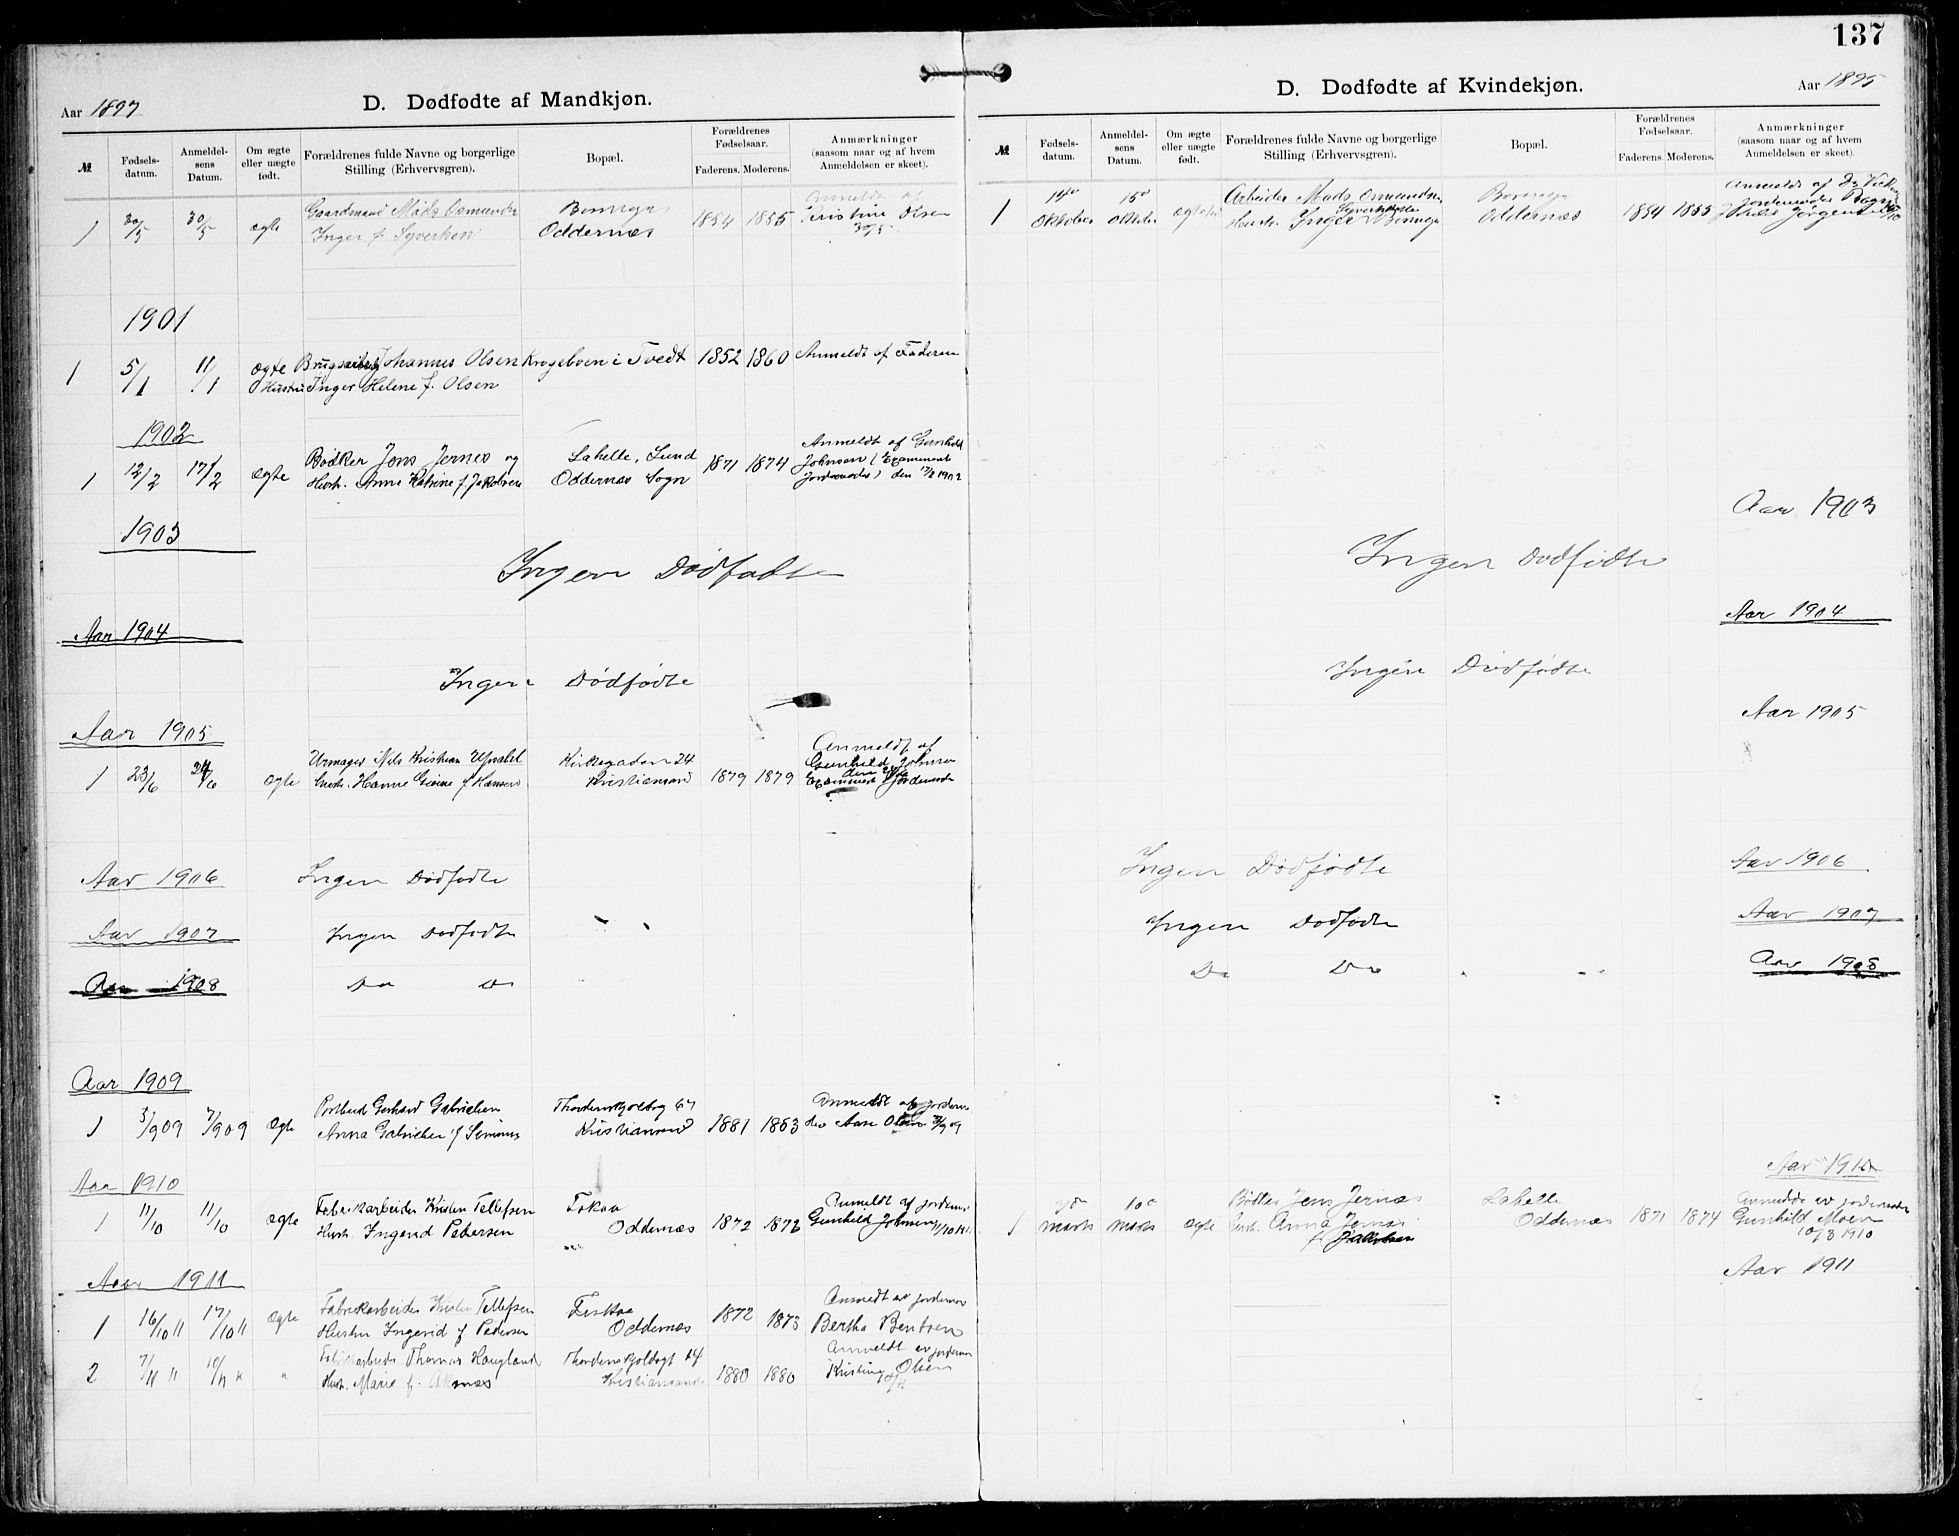 137
Aar 1897
D. Dødfødte af Mandkjøn.
№
Fødsels-
datum.
Anmeldel-
sens
Datum.
Om ægte
eller uægte
født.
Forældrenes fulde Navne og borgerlige
Stilling (Erhvervsgren).
Bopæl.
Forældrenes
Fødselsaar.
Faderens. Moderens.
Anmærkninger
(saasom naar og af hvem
Anmeldelsen er skeet).
1 30/5 30/5 ægte Gaardmand Mads Osmunds 1854 1855 Anmeldt af
Inger f. Syvertsen Oddernæs Kristine Olsen
30/5
1901
1 5/1 11/1 ægte Johannes Olsen Krogeboen i Tvedt 1852 1860 Anmeldt af Faderen
Hustru Inger Helene f. Olsen
1902
1 12/2 17/2 ægte Bødker Jens Jernes og Lahelle, Lund 1871 1874 Anmeldt af Gunhild
Hustr. Anne Katrine f. Jakobsen Oddernæs Sogn Johnsen (Examineret
Jordmoder) den 17/2 1902
1903
Ingen Dødfødte
Aar 1904
Ingen Dødfødte
Aar 1905
1 23/6 24/6 ægte Urmager Nils Kristian Kirkegaden 24 1879 1879 Anmeldt af
Hustr. Hanne f. Hansen Kristiansand Gunhild Johnsen
Examineret Jordemoder
Aar 1906 Ingen Dødfødte
Aar 1907 Ingen Dødfødte
Aar 1908 Do Do
Aar 1909
1 3/9 09 7/9 09 ægte Postbud Gerhard Gabrielsen 67 1881 1883 Anmeldt af Jordemo
Anna Gabrielsen f. Kristiansand der Aase Olsen 7/9 09
Aar 1910
1 11/10 11/10 ægte Fabrikarbeider Kristen Tellefsen Oddernæs 1872 1872 Anmeldt af Jordemor
Hustr. Ingerid Pedersen Gunhild Johnsen 11/10 1910
Aar 1911
1 16/10 11 17/10 11 ægte Fabrikarbeider Kristen Tellefsen Fiskaa 1872 1873 Anmeldt av Jordemor
Hustru Ingerid f. Pedersen Oddernæs Bertha Bentsen
2 7/11 11 10/11 11 " Fabrikarbeider Thomas Haugland 14 1880 1880 Anmeldt av Jordemor
Hustr. Marie f. Kristiansand Kristine Olsen
D. Dødfødte af Kvindekjøn.
Aar 1895
№
Fødsels-
datum.
Anmeldel-
sens
Datum.
Om ægte
eller uægte
født.
Forældrenes fulde Navne og borgerlige
Stilling (Erhvervsgren).
Bopæl.
Forældrenes
Fødselsaar.
Faderens. Moderens.
Anmærkninger
(saasom naar og af hvem
Anmeldelsen er skeet).
1 14de Oktober 15de Oktober Arbeider Mads Osmundsen Oddernæs 1854 1855 Anmeldt af
Hustr. Inger Syvertsdatter Jordemoder
Aar 1903
Ingen Dødfødte
Aar 1904
Ingen Dødfødte
Aar 1905
Ingen Dødfødte Aar 1906
Ingen Dødfødte Aar 1907
Do Do Aar 1908
Aar 1910
1 Marts 10de Marts ægte Bødker Jens Jernæs Lahelle 1871 1874 Anmeldt av Jordemoder
Hustr. Anna Jernæs Oddernæs Gunhild Moen
f. Jakobsen 10/3 1910
Aar 1911